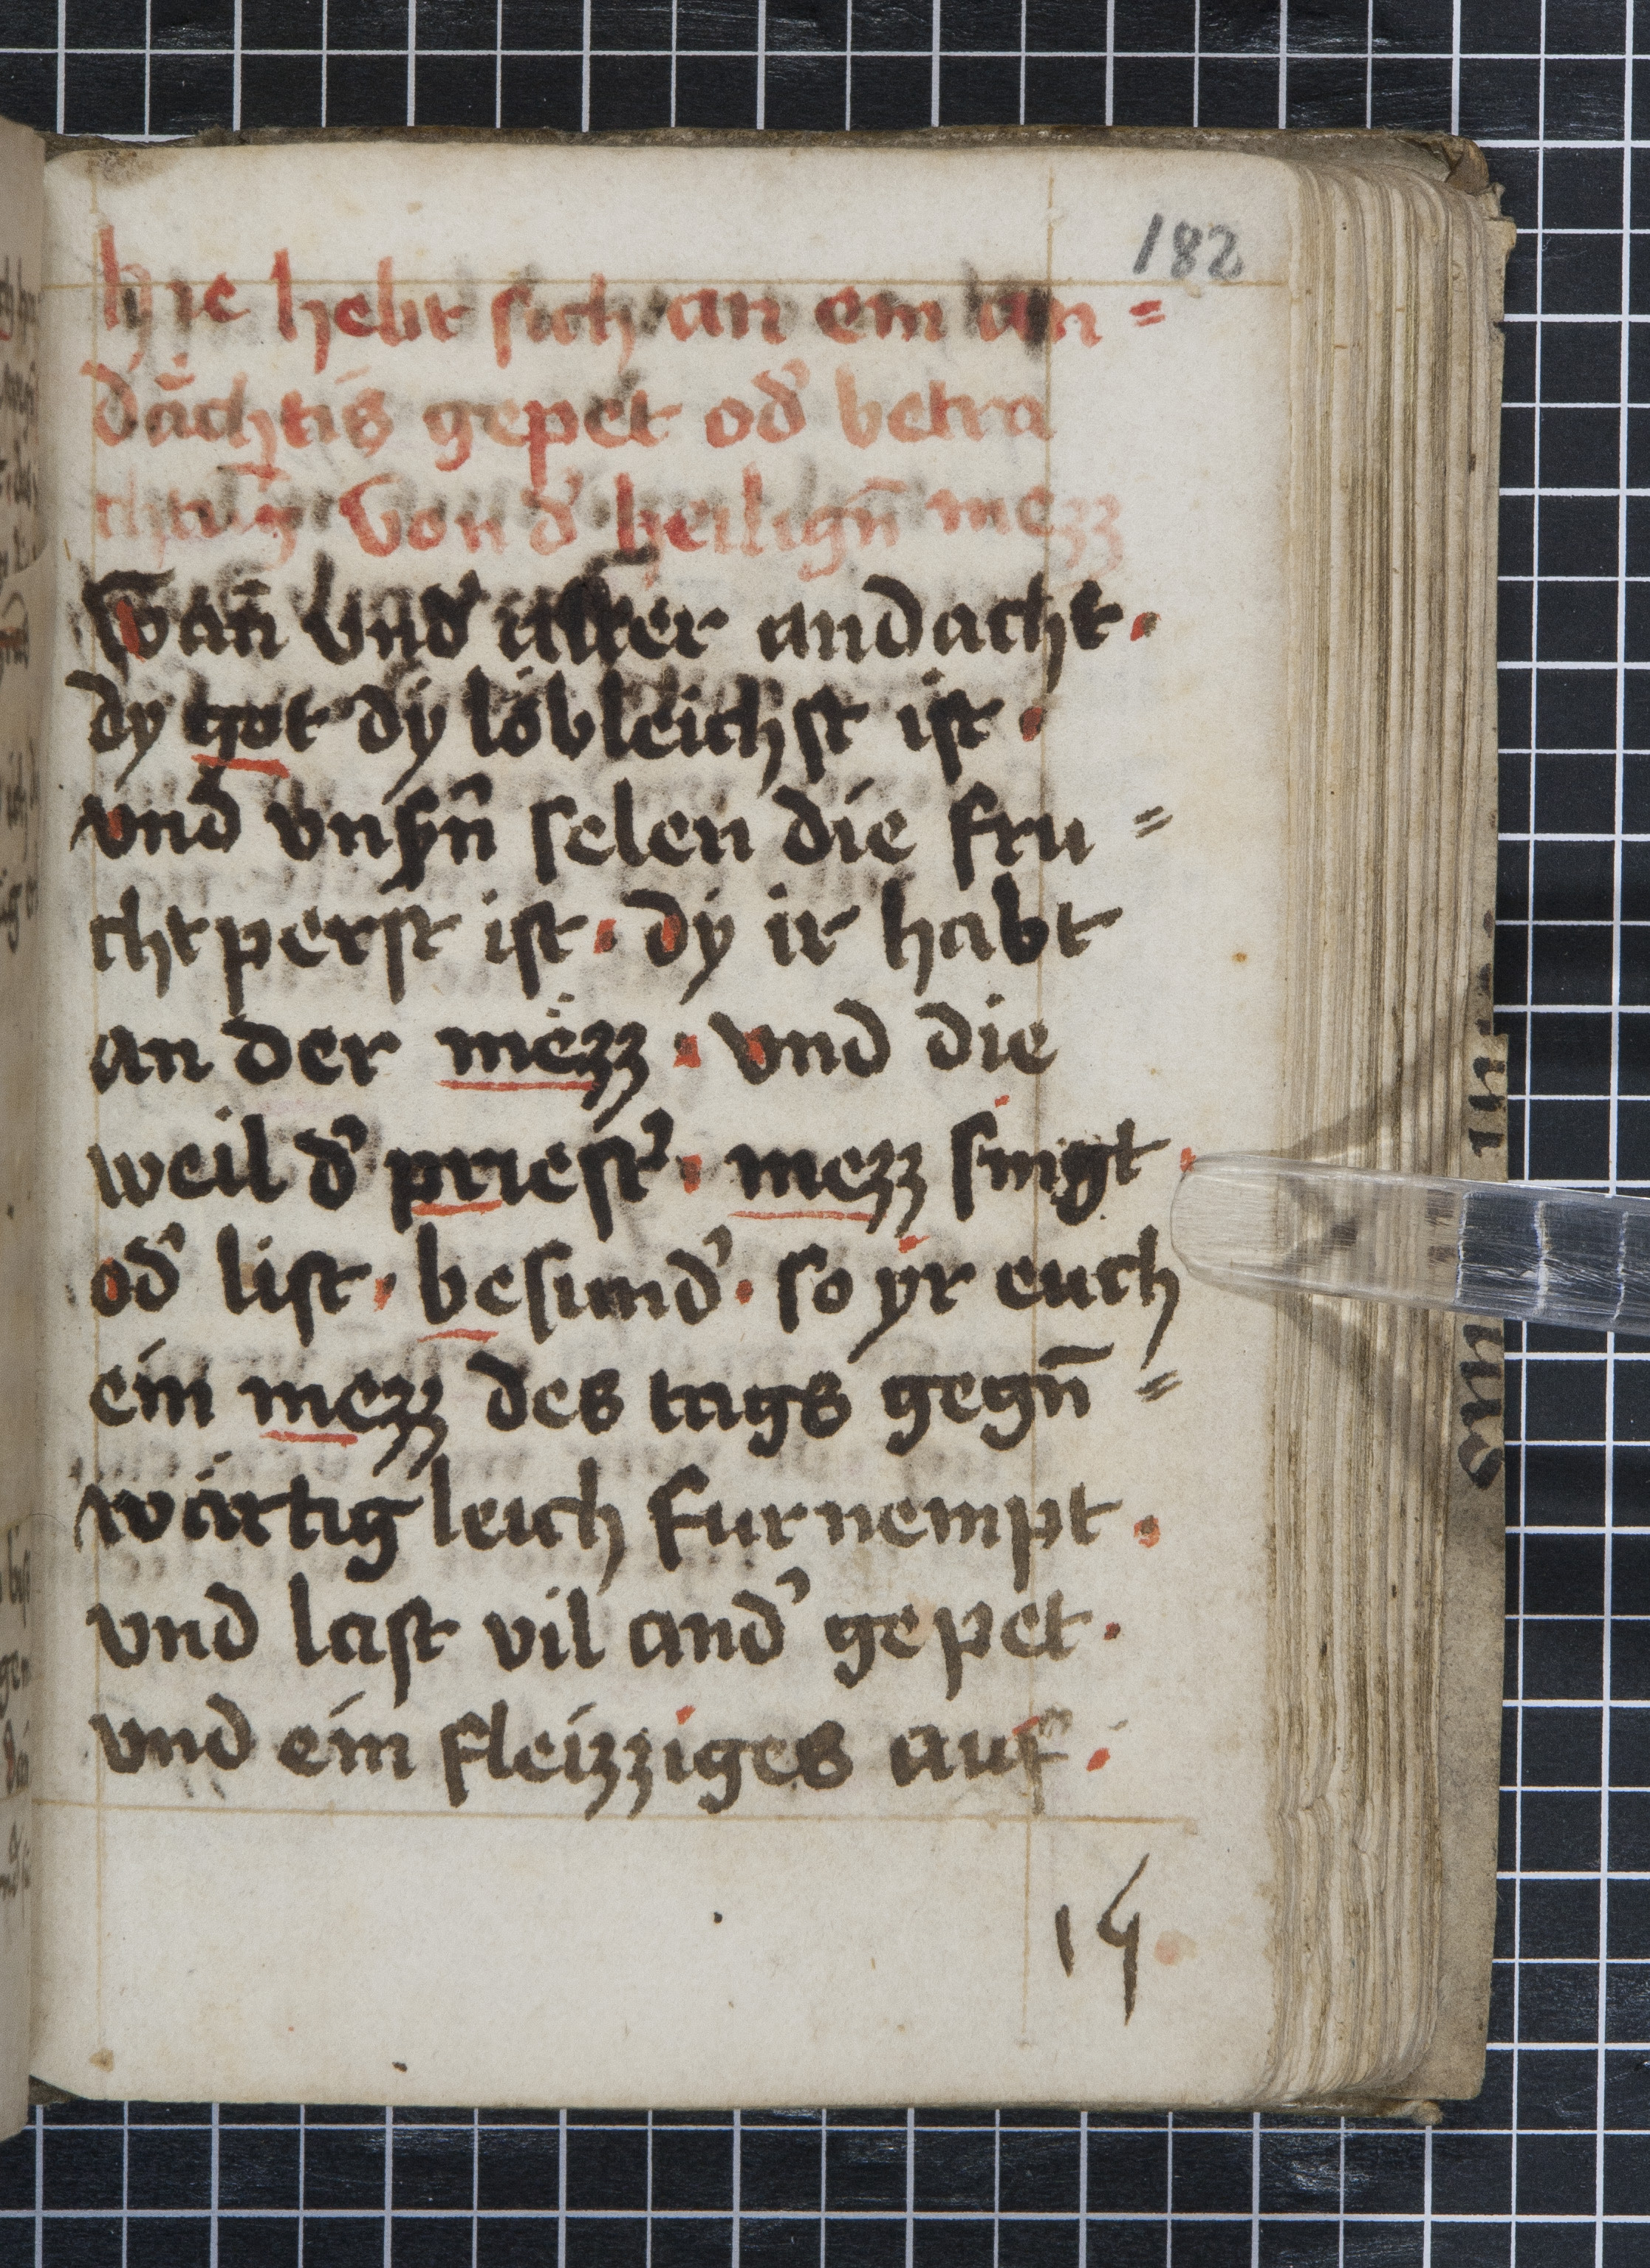 182
hie hebt sich an ein an=
dächtis gepet od' betra
chtūg von d' heilign̄ mezz
Wan̄ vnd' aller andacht.
dy got dy löbleichst ist.
vnd vnsn̄ selen die fru=
chtperst ist. dy ir habt
an der mezz. vnd die
weil d' priest'. mezz singt.
od' list. besund'. so yr euch
ein mezz des tags gegn̄=
wärtigleich furnempt.
vnd last vil and' gepet.
vnd ein fleizziges auf.
14